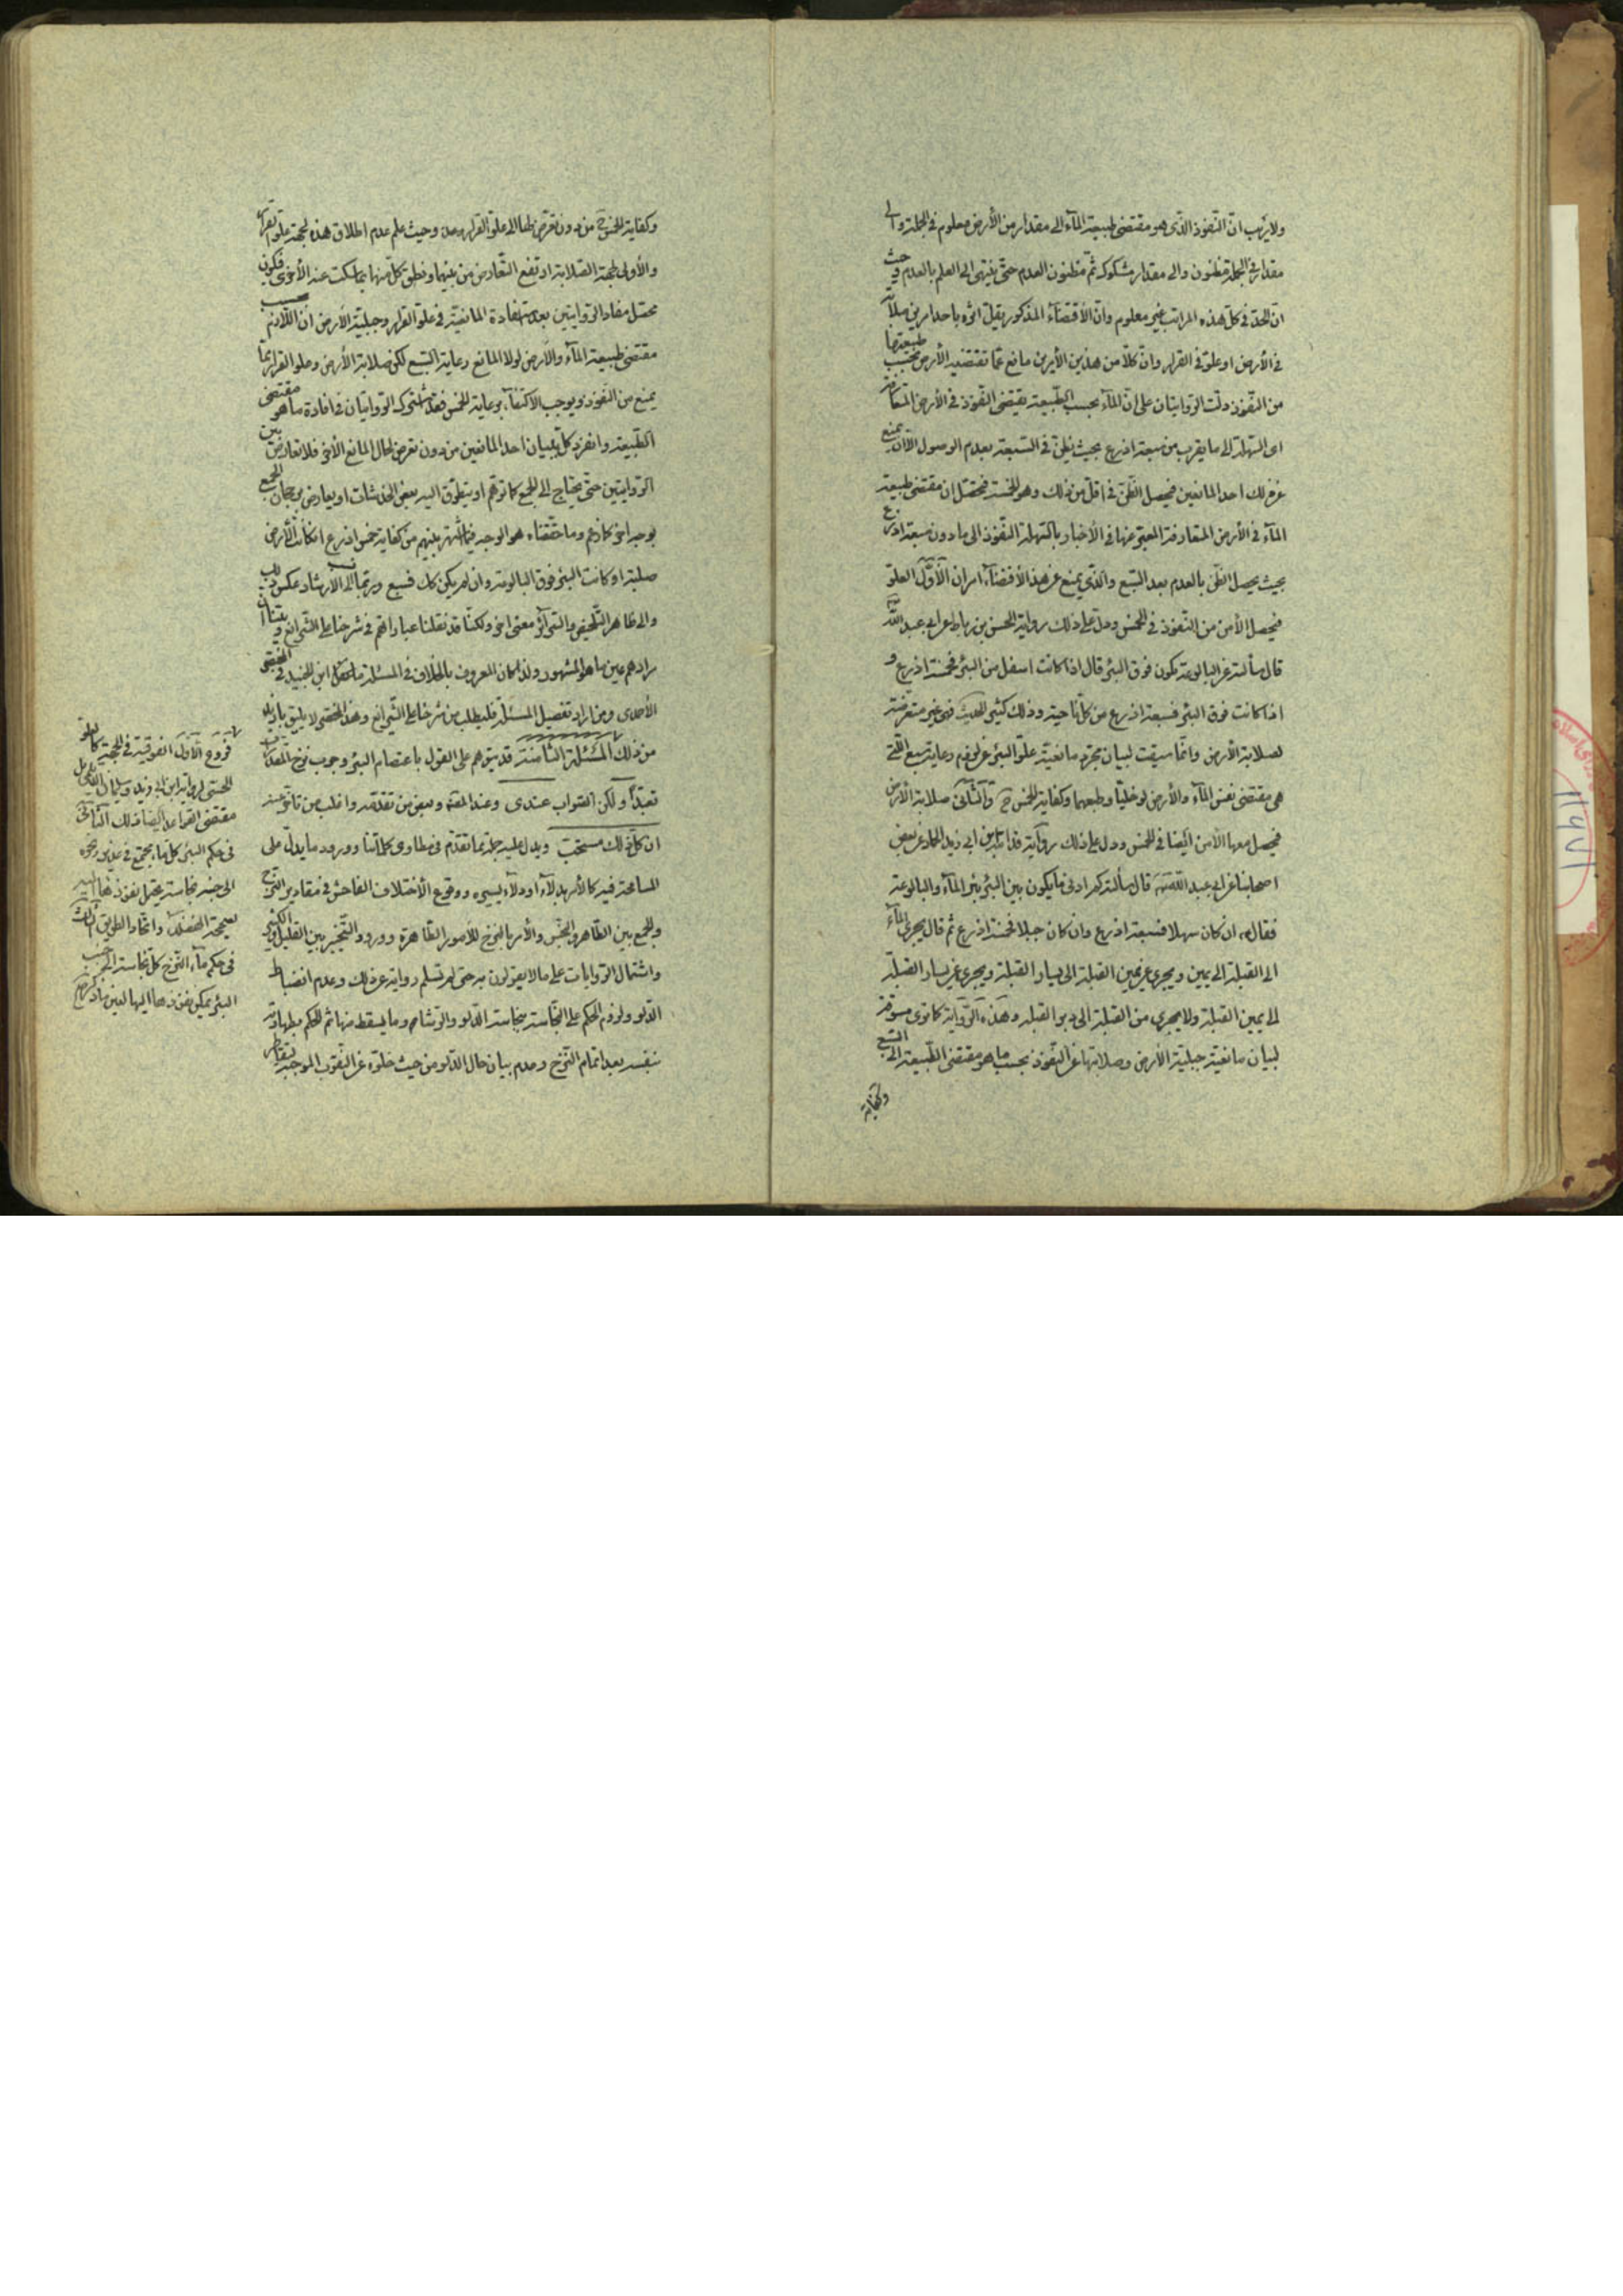 ولا ريب ان النفوذ الذى هو مقتضى طبيعة المآء الى مقدار من الأرض معلوم فى الجملة والى
مقدار فى الجملة مظنون والى مقدار مشكوك ثم مظنون العدم حتى ينتهى الى العلم بالعدم وحيث
ان الحد فى كل هذه المراتب غير معلوم وان الأقتضآء المذكور يقل اثره باحد امرين صلابة
فى الأرض او علو فى القرار وان كلا من هذين الأمرين مانع عما تقتضيه الأرض بحسب طبيعتها
من النفوذ دلت الروايتان على ان المآء بحسب الطبيعة يقتضى النفوذ فى الأرض المتعارفة
اى السهلة الى ما يقرب من سبعة اذرع بحيث يظن فى السبعة بعدم الوصول الا ان يمنع
عن ذلك احد المانعين فيحصل الظن فى اقل من ذلك وهو الخمسة فيحصل ان مقتضى طبيعة
المآء فى الأرض المتعارفة المعبر عنها فى الأخبار بالسهلة النفوذ الى ما دون سبعة اذرع
بحيث يحصل الظن بالعدم بعد السبع والذى يمنع عن هذا الأقتضآء امران الأول العلو
فيحصل الأمن من النفوذ فى الخمس ودل على ذلك رواية الحسن بن رباط عن ابى عبد الله
قال سألته عن البالوعة تكون فوق البئر قال اذا كانت اسفل من البئر فخمسة اذرع و
اذا كانت فوق البئر فسبعة اذرع من كل ناحية وذلك كثير فهى غير متعرضة
لصلابة الأرض وانما سيقت لبيان مجرد مانعية علو البئر عن لزوم رعاية سبع التى
هى مقتضى نفس المآء والأرض لو خليا وطبعهما وكفاية الخمس ح والثانى صلابة الأرض
فيحصل معها الأمن ايضا فى الخمس ودل على ذلك رواية قدامة بن ابى زيد الجماز عن بعض
اصحابنا عن ابى عبد الله قال سألته كم ادنى ما يكون بين البئر بئر المآء والبالوعة
فقال ان كان سهلا فسبعة اذرع وان كان جبلا فخمسة اذرع ثم قال يجرى المآء
الى القبلة الى يمين ويجرى عن يمين القبلة الى يسار القبلة ويجرى عن يسار القبلة
الى يمين القبلة ولا يجرى من القبلة الى دبر القبلة وهذه الرواية كما ترى مسوقة
لبيان مانعية جبلية الأرض وصلابتها عن النفوذ بحسب ما هو مقتضى الطبيعة الى السبع
وكفاية
وكفاية الخمس ح من دون تعرض لها الى علو القرار وحيث علم عدم اطلاق هذه لجهة علو القرار
والأولى لجهة الصلابة ارتفع التعارض من بينهما ونطق كل منهما بما سكت عنه الأخرى فيكون
محصل مفاد الروايتين بعد استفادة المانعية فى علو القرار وجبلية الأرض ان اللازم بحسب
مقتضى طبيعة المآء والأرض لولا المانع رعاية السبع لكن صلابة الأرض وعلو القرار مما
يمنع من النفوذ ويوجب الأكتفآء برعاية الخمس فقد اشترك الروايتان فى افادة ما هو مقتضى
الطبيعة وانفرد كل ببيان احد المانعين من دون تعرض لحال المانع الأخر فلا تعارض بين
الروايتين حتى يحتاج الى الجمع كما توهم او يتطرق اليه بعض الخدشات او يعارض برجحان الجمع
بوجه اخر كما زعم وما حققناه هو الوجه فيما اشتهر بينهم من كفاية خمس اذرع ان كانت الأرض
صلبة او كانت البئر فوق البالوعة وان لم يكن كك فسبع وربما نسب الى الأرشاد عكس ذلك
والى ظاهر التلخيص والسرائر معنى اخر ولكنا قد نقلنا عباراتهم فى شرحنا على الشرائع وبينا ان
مرادهم عين ما هو المشهور ولذا كان المعروف بالخلاف فى المسئلة ابن الجنيد فى المختصر
الأحمدى ومن اراد تفصيل المسئلة فليطلب من شرحنا على الشرائع وهذا المختصر لا يليق بازيد
من ذلك المسئلة الثامنة قد يتوهم على القول باعتصام البئر وجوب نزح المقدرات
تعبدا ولكن الصواب عندى وعند المعظم وبعض من تقدمه واغلب من تاخر عنه
ان كل ذلك مستحب ويدل عليه جملة مما تقدم فى مطاوى كلماتنا وورود ما يدل على
المسامحة فيه كالأمر بدلآء او دلآء يسيرة ووقوع الأختلاف الفاحش فى مقادير النزح
والجمع بين الظاهر والنجس والأمر بالنزح للأمور الطاهرة وورود التخيير بين القليل والكثير
واشتمال الروايات على ما لا يقولون به حتى لم تسلم رواية عن ذلك وعدم انضباط
الدلو ولزوم الحكم على النجاسة بنجاسة الدلو والرشا وما يسقط منها ثم الحكم بطهارته
بنفسه بعد اتمام النزح وعدم بيان حال الدلو من حيث خلوه عن الثقوب الموجبة لتقاطر
فروع الأول الفوقية فى الجهة كالعلو
الحسى لرواية ابن ابى زيد وسليمان الديلمى بل
مقتضى القواعد ايضا ذلك الثانى
فى حكم البئر كل ماء يجتمع فى غدير ونحوه
الى جنبه نجاسة يحتمل نفوذها اليه
لصحيحة الفضلاء واتحاد الطريق الثالث
فى حكم ماء النزح كل نجاسة الى جنب
البئر يمكن نفوذها اليها لعين ما ذكر